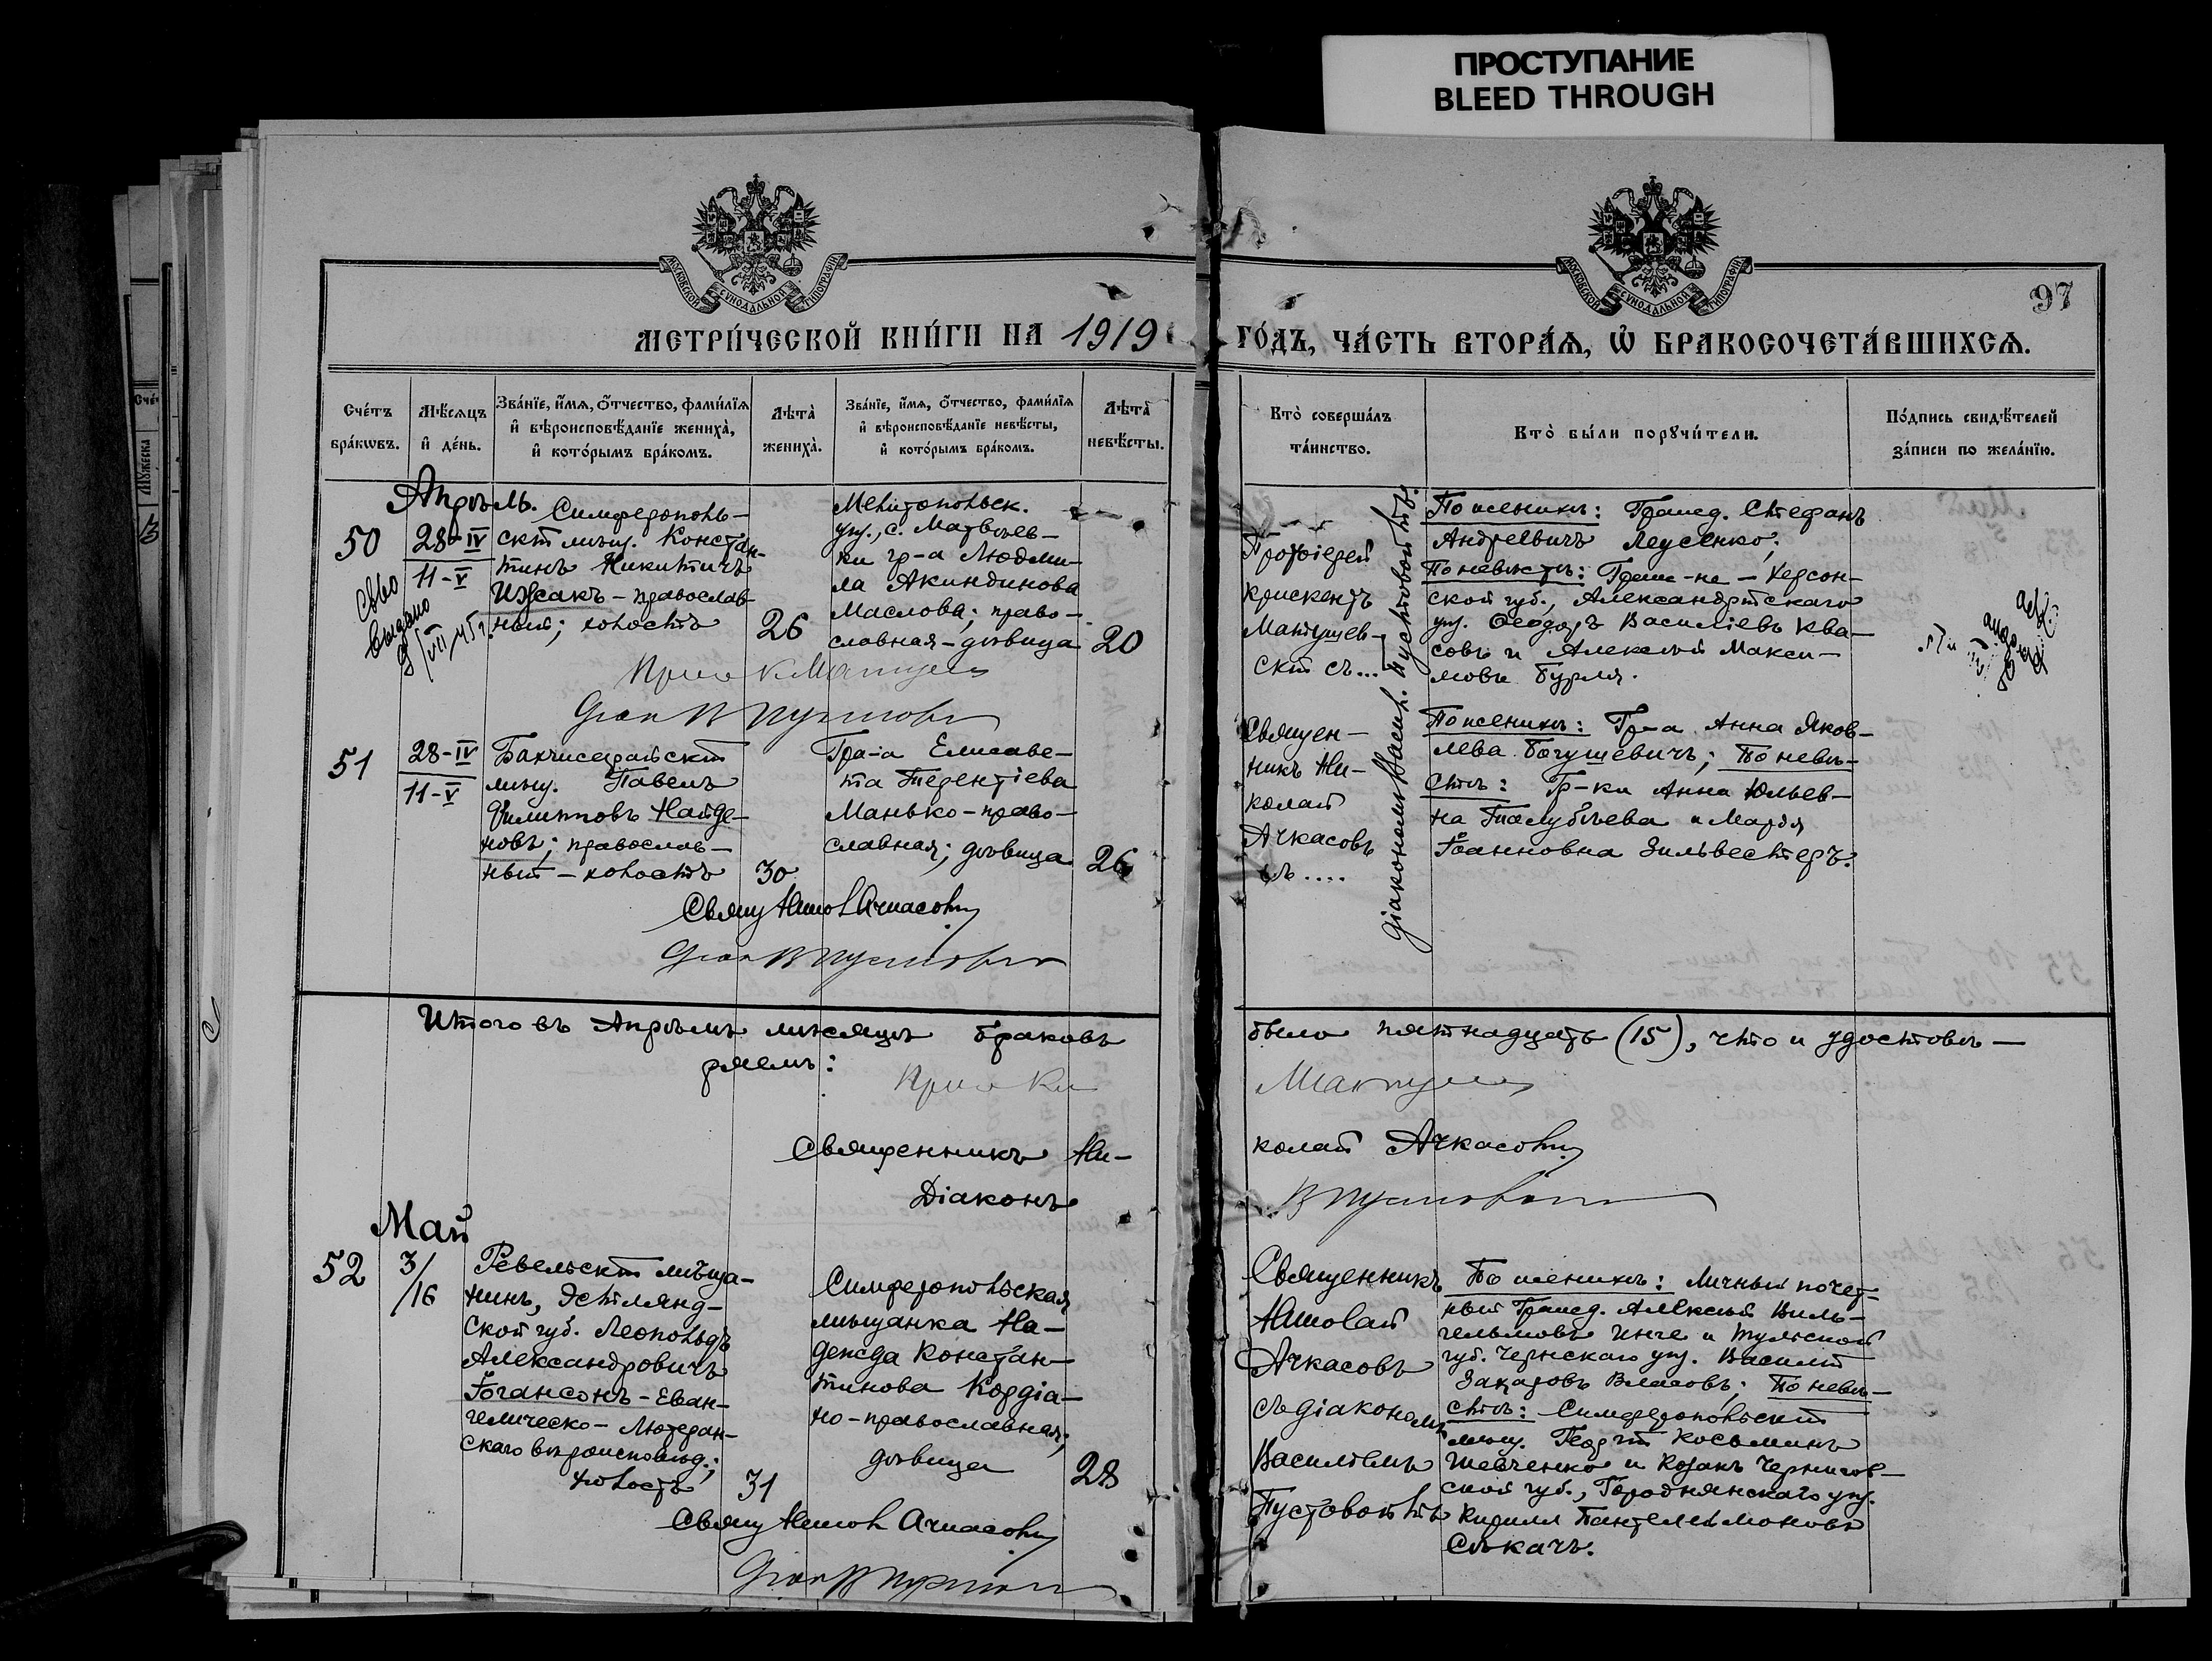 ПРОСТУПАНИЕ
BLEED THROUGH
МОСКОВСКОЙ СУНОДАЛЬНОЙ ТИПОГРАФІИ
МОСКОВСКОЙ СУНОДАЛЬНОЙ ТИПОГРАФІИ
97
МЕТРИ́ЧЕСКОЙ КНИ́ГИ НА 1919
ГО́ДЪ, ЧА́СТЬ ВТОРА́Ѧ, Ѡ҆ БРАКОСОЧЕТА́ВШИХСѦ.
Сче́тъ
бра́кѡвъ.
Мѣ́сѧцъ
и҆ де́нь.
Зва́нїе, и҆́мѧ, ѻ҆́тчество, фами́лїѧ
и҆ вѣроисповѣ́данїе жениха̀,
и҆ кото́рымъ бра́комъ.
Лѣта̀
жениха̀.
Зва́нїе, и҆́мѧ, ѻ҆́тчество, фами́лїѧ
и҆ вѣроисповѣ́данїе невѣ́сты,
и҆ кото́рымъ бра́комъ.
Лѣта̀
невѣ́сты.
Кто̀ соверша́лъ
та́инство.
Кто̀ бы́ли порꙋчи́тели.
По́дпись свидѣ́телей
за́писи по жела́нїю.
Апрѣль.
50
28-IV
11-V
Симферополь-
скій мѣщ. Констан-
тинъ Никитичъ
Ижакъ - православ-
ный; холостъ
26
Мелитопольск.
уѣз., с. Матвѣев-
ки гр-а Людми-
ла Акиндинова
Маслова; право-
славная - дѣвица
20
Св-во
выдано
Протоіерей
Крискентъ
Матушев-
скій съ...
діакономъ Васил. Пустовойтъ.
По женихѣ: Гражд. Стефанъ
Андреевичъ Леусенко;
По невѣстѣ: Граж-не - Херсон-
ской губ., Александрійскаго
уѣз. Ѳеодоръ Василіевъ Ква-
совъ и Алексѣй Макси-
мовъ Бурля.
51
28-IV
11-V
Бахчисарайскій
мѣщ. Павелъ
Филипповъ Найде-
новъ; православ-
ный - холостъ
30
Гра-а Елисаве-
та Терентіева
Манько - право-
славная; дѣвица
26
Священ-
никъ Ни-
колай
Ачкасовъ
съ....
По женихѣ: Гр-а Анна Яков-
лева Богушевичъ; По невѣ-
стѣ: Гр-ки Анна Юльев-
на Голубѣева и Марія
Іоанновна Зильвестеръ.
Свящ Никол Ачкасовъ
Итого въ Апрѣлѣ мѣсяцѣ браковъ
было пятнадцать (15), что и удостовѣ-
ряемъ:
Священникъ Ни-
колай Ачкасовъ
Діаконъ
Май
52
3/
/16
Ревельскій мѣща-
нинъ, Эстлянд-
ской губ. Леопольдъ
Александровичъ
Іогансонъ - Еван-
гелическо - Лютеран-
скаго вѣроисповѣд.;
холостъ
31
Симферопольская
мѣщанка На-
дежда Констан-
тинова Кордіа-
но - православная;
дѣвица
28
Священникъ
Николай
Ачкасовъ
съ діакономъ
Василіемъ
Пустовойтъ
По женихѣ: Личный почет-
ный Гражд. Алексѣй Виль-
гельмовъ Инге и Тульской
губ. Чернскаго уѣз. Василій
Захаровъ Власовъ; По невѣ-
стѣ: Симферопольскій
мѣщ. Георгій Косьминъ
Шевченко и Козакъ Чернигов-
ской губ., Городнянскаго уѣз.
Кириллъ Пантелеимоновъ
Сѣкачъ.
Свящ Никол Ачкасовъ